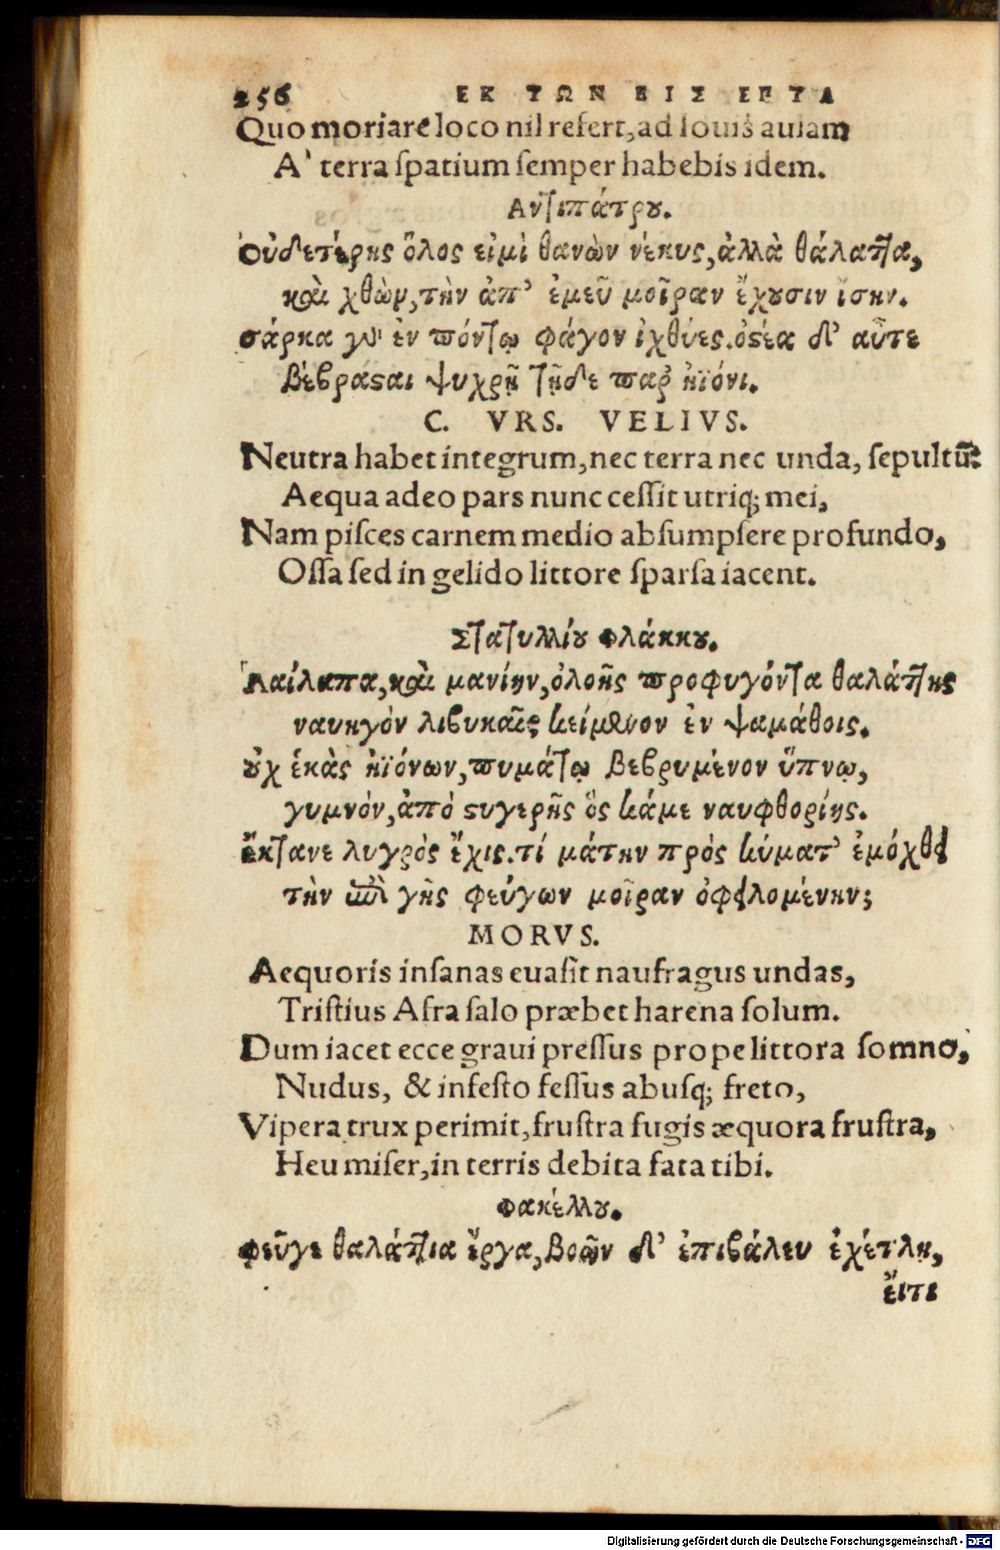 256 ΕΚ ΤΩΝ ΒΙΣ ΕΠΤΑ
Quo moriare loco nil refert, ad Iouis aulam
A' terra ſpatium ſemper habebis idem.
Αντιπάτρου.
Οὐδετέρης ὅλος εἰμὶ θανὼν νέκυς, ἀλλὰ θάλαττα,
καὶ χθὼν, τὴν ἀπ' ἐμεῦ μοῖραν ἔχουσιν ἴσην.
σάρκα γὰρ ἐν πόντῳ φάγον ἰχθύες. ὀστέα δ' αὖτε
βέβρασται ψυχρῇ τῇδε παρ' ἠϊόνι.
C. VRS. VELIVS.
Neutra habet integrum, nec terra nec unda, ſepultũ:
Aequa adeo pars nunc ceſſit utriq; mei,
Nam piſces carnem medio abſumpſere profundo,
Oſſa ſed in gelido littore ſparſa iacent.
Στατυλλίου Φλάκκου.
Λαίλαπα, καὶ μανίην, ὀλοῆς προφυγόντα θαλάττης
ναυηγὸν λιβυκαῖς κείμενον ἐν ψαμάθοις.
οὐχ ἑκὰς ἠϊόνων, πυμάτῳ βεβρυμένον ὕπνῳ,
γυμνὸν, ἀπὸ στυγερῆς ὃς κάμε ναυφθορίης.
ἔκτανε λυγρὸς ἔχις. τί μάτην πρὸς κύματ' ἐμόχθει
τὴν ἐπὶ γῆς φεύγων μοῖραν ὀφειλομένην;
MORVS.
Aequoris inſanas euaſit naufragus undas,
Triſtius Afra ſalo præbet harena ſolum.
Dum iacet ecce graui preſſus prope littora ſomno,
Nudus, & infeſto feſſus abuſq; freto,
Vipera trux perimit, fruſtra fugis æquora fruſtra,
Heu miſer, in terris debita fata tibi.
Φακέλλου.
φεῦγε θαλάττια ἔργα, βοῶν δ' ἐπιβάλευ ἐχέτλῃ,
εἴ τι
Digitalisierung gefördert durch die Deutsche Forschungsgemeinschaft - DFG